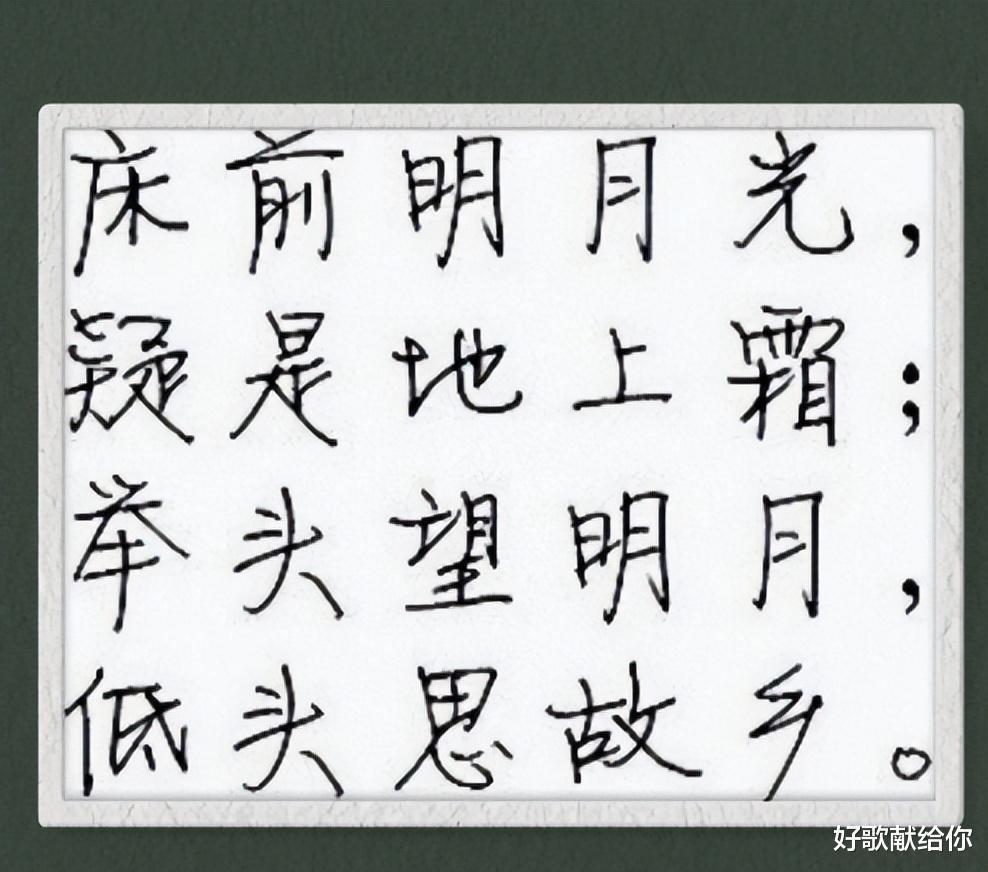 床前明月光，
疑是地上霜；
举头望明月，
低头思故乡。
好歌献给你